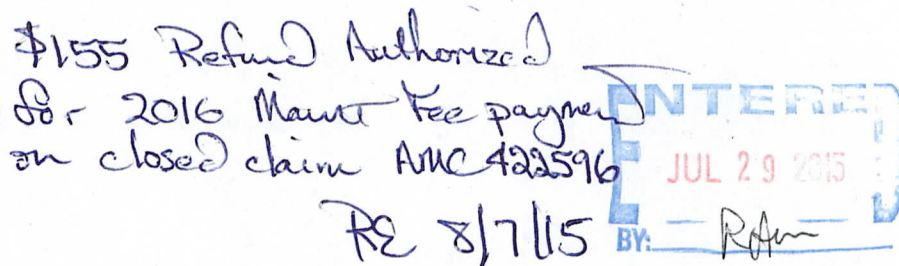 $155 Refund Authorized
for 2016 Maint Fee payment
on closed claim AMC422596
RE 8/7/15
ENTERED
JUL 29 2015
BY: